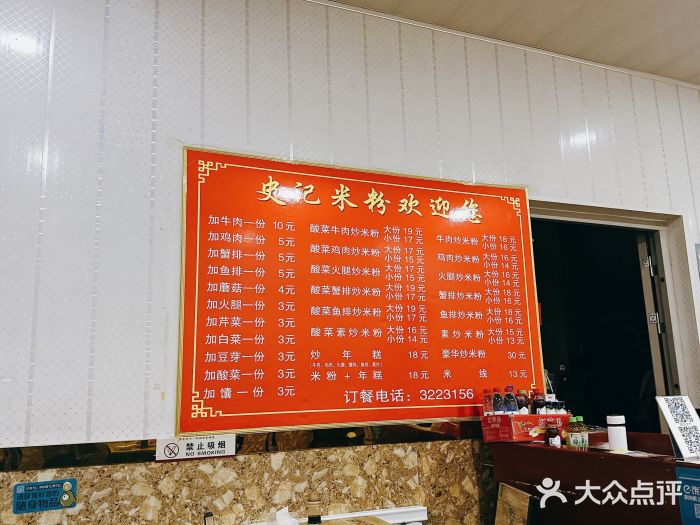 史记米粉欢迎您
加牛肉一份 10元
加鸡肉一份 5元
加蟹排一份 5元
加鱼排一份 5元
加蘑菇一份 4元
加火腿一份 3元
加芹菜一份 3元
加白菜一份 3元
加豆芽一份 3元
加酸菜一份 3元
加馕一份 3元
酸菜牛肉炒米粉 大份 19元
小份 17元
酸菜鸡肉炒米粉 大份 17元
小份 15元
酸菜火腿炒米粉 大份 17元
小份 15元
酸菜蟹排炒米粉 大份 19元
小份 17元
酸菜鱼排炒米粉 大份 19元
小份 17元
酸菜素炒米粉 大份 16元
小份 14元
炒年糕 18元
米粉+年糕 18元
牛肉炒米粉 大份 18元
小份 16元
鸡肉炒米粉 大份 16元
小份 14元
火腿炒米粉 大份 16元
小份 14元
蟹排炒米粉 大份 18元
小份 16元
鱼排炒米粉 大份 18元
小份 16元
素炒米粉 大份 15元
小份 13元
豪华炒米粉 30元
米线 13元
订餐电话：3223156
禁止吸烟
NO SMOKING
请保管好您的
随身物品
大众点评